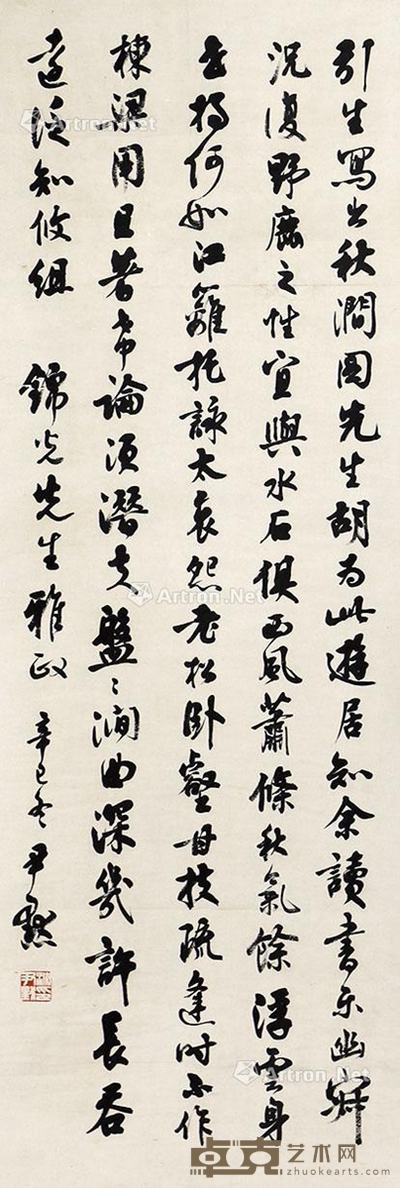 引生寫出秋澗圖先生胡為此遊居知余讀書樂幽
況復野麋之性宜與水石俱西風蕭條秋氣餘浮雲身
世將何如江籬托詠太哀怨老松臥壑甘枝疏逢時不作
棟梁用日著希論須潛夫盤〻澗曲深幾許長吞
遠泛知攸徂 錦光先生雅政 辛巳冬 尹默
Artron.Net
Artron.Net
Artron.Net
Artron.Net
卓克艺术网
zhuokearts.com